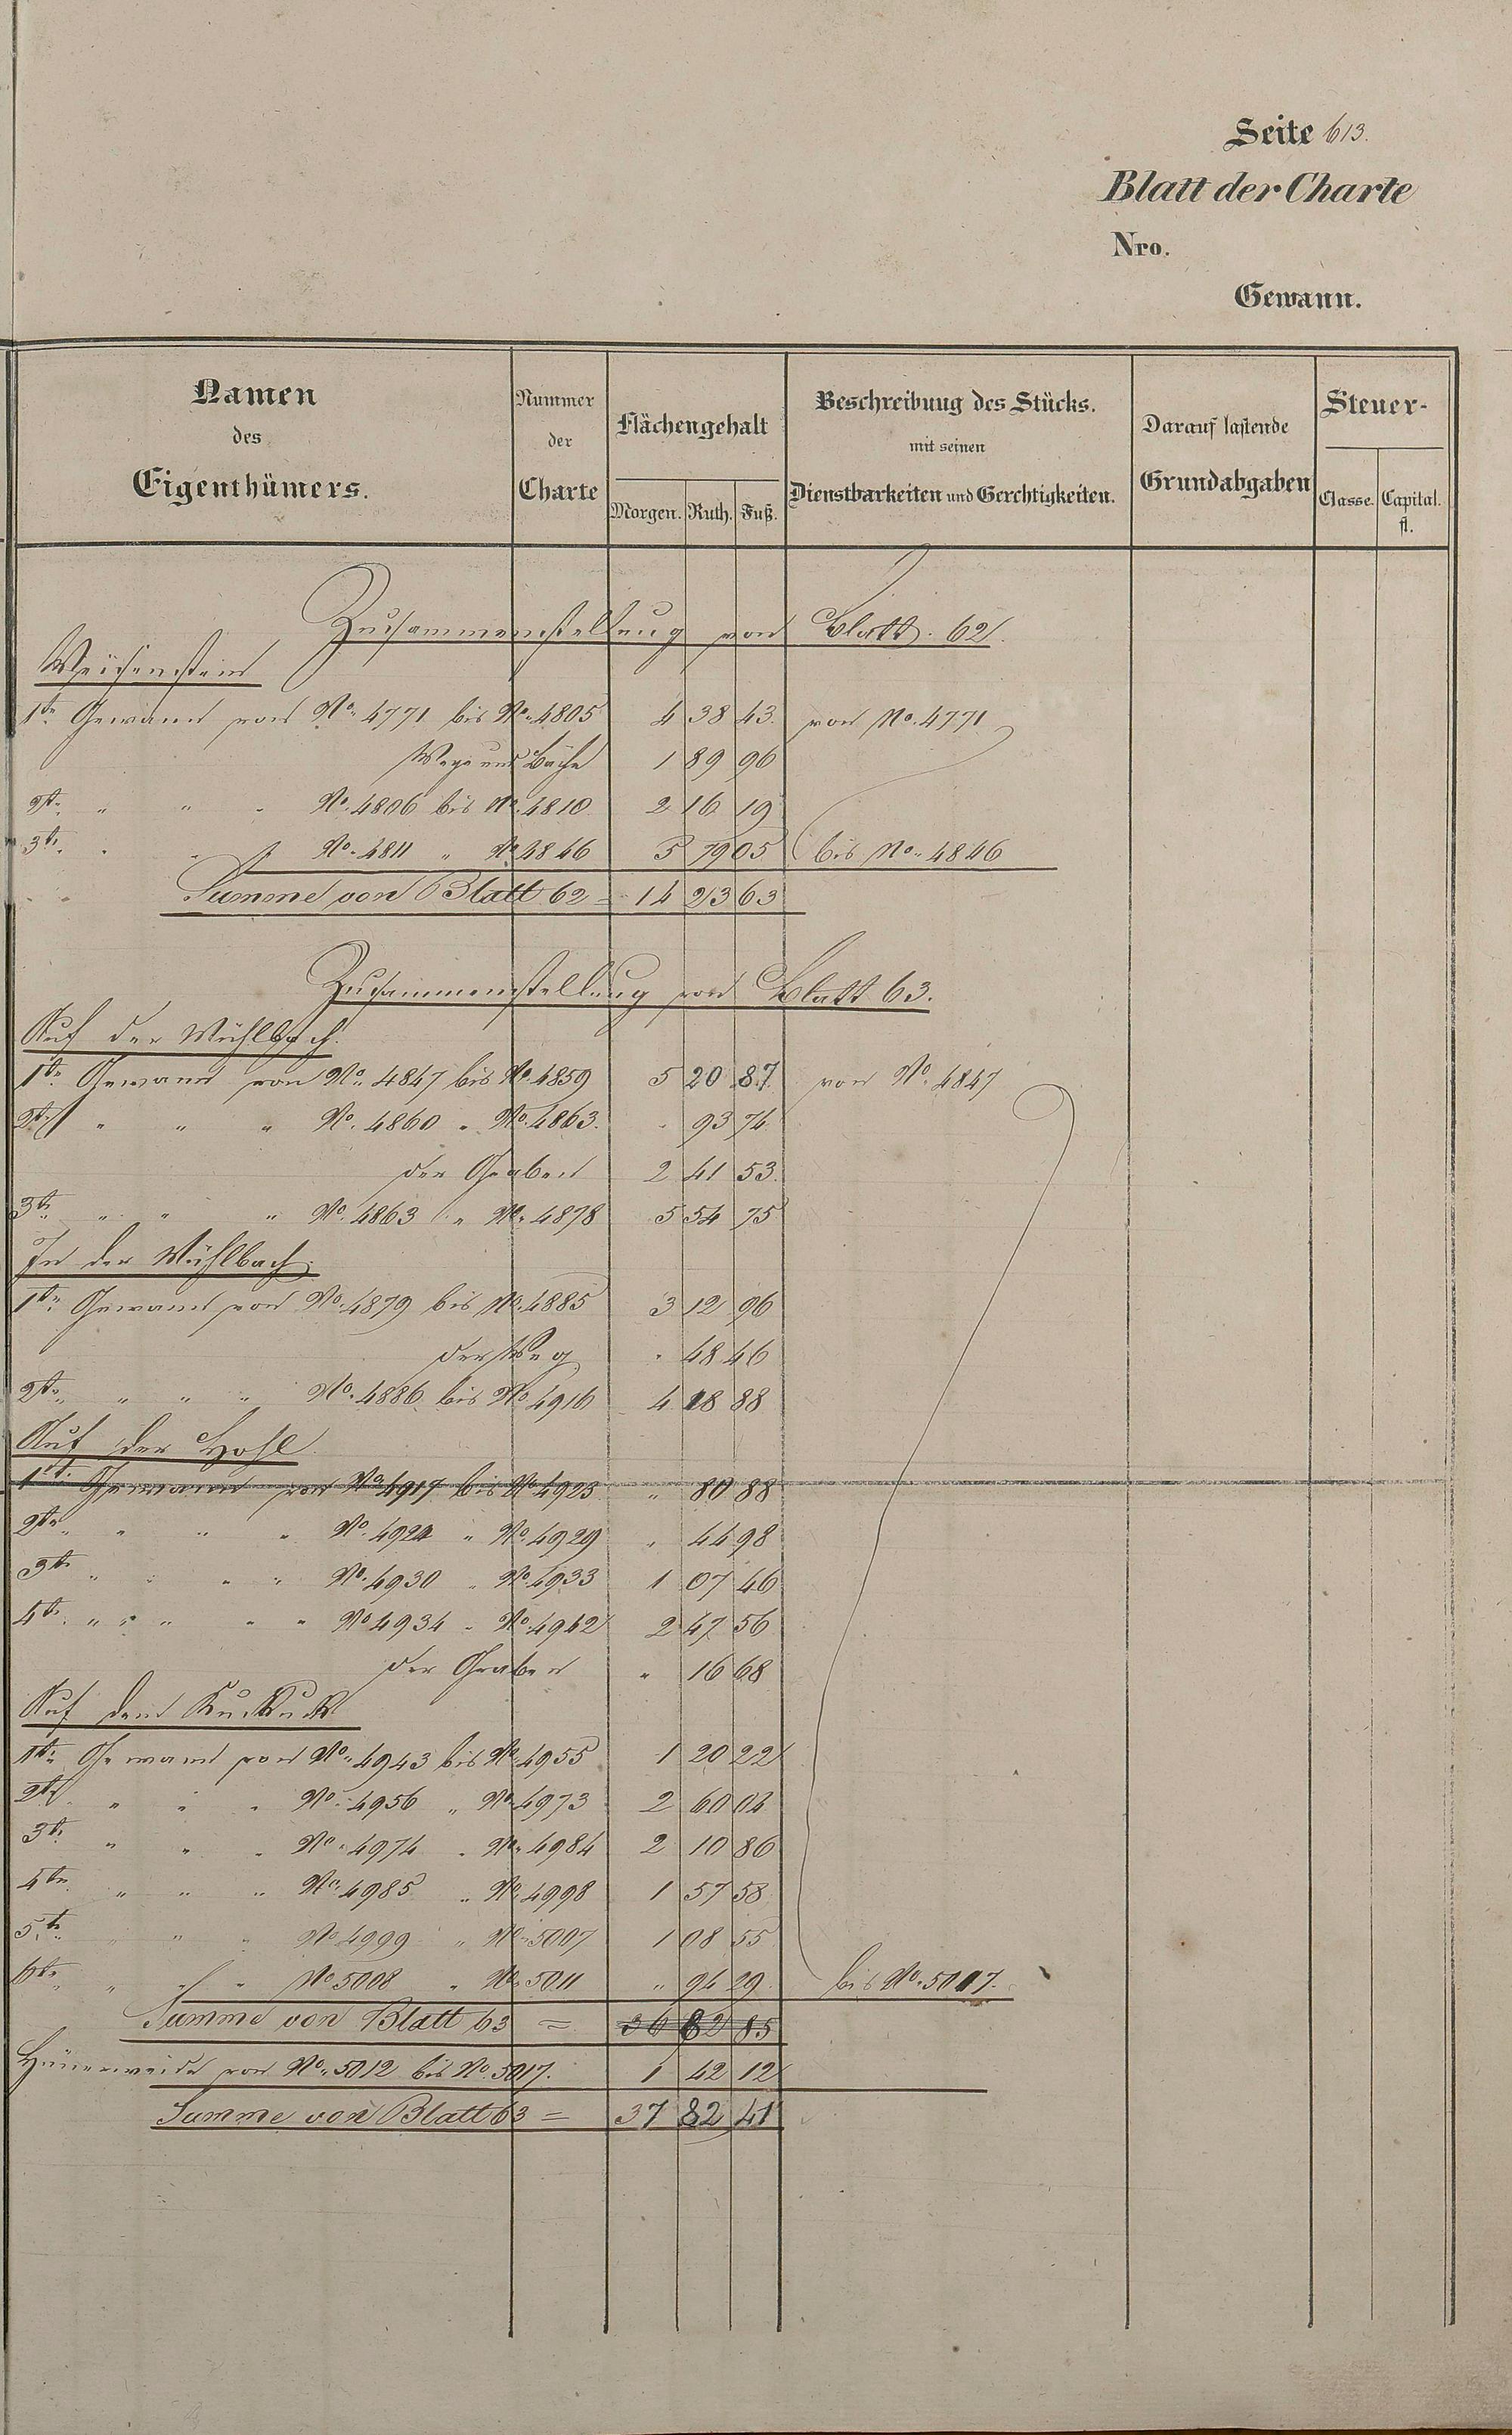 Seite 613.
Blatt der Charte
Nro.
Gewann.
Namen
des
Eigenthümers.
Nummer
der
Charte
Flächengehalt
Morgen. Ruth. Fuß.
Beschreibung des Stücks.
mit seinen
Dienstbarkeiten und Gerchtigkeiten.
Darauf lastende
Grundabgaben
Steuer-
Classe. Capital.
fl.
Zusammenstellung von Blatt. 62.
Weisenstein
1te Gewann von No. 4771 bis No. 4805 4 38 43 von No. 4771
Wege und Bäche 1 89 96
2te " " " No. 4806 bis No. 4810 2 16 19
3te " " " No. 4811 " No. 4846 5 79 05 bis No. 4846
Summe von Blatt 62 = 14 23 63
Zusammenstellung von Blatt 63.
Auf der Mühlbach.
1te Gewann von No. 4847 bis No. 4859 5 20 87 von No. 4847
2te " " " No. 4860 " No. 4863. " 93 74
der Graben 2 41 53
3te " " " No. 4863 " No. 4878 5 54 75
In der Mühlbach
1te Gewann von No. 4879 bis No. 4885 3 12 96
der Weg " 48 46
2te " " " No. 4886 bis No. 4916 4 18 88
Auf der Hohl
1te Gewann von No. 4917 bis No. 4923 " 80 88
2te " " " No. 4924 " No. 4929 " 44 98
3te " " " No. 4930 " No. 4933 1 07 46
4te " " " " " No. 4934 " No. 4942 2 47 56
der Graben " 16 68
Auf dem Kuckuck
1te Gewann von No. 4943 bis No. 4955 1 20 22
2te " " " No. 4956 " No. 4973 2 60 04
3te " " " No. 4974 " No. 4984 2 10 86
4te " " " No. 4985 " No. 4998 1 57 58
5te " " " No. 4999 " No. 5007 1 08 55
6te " " " No. 5008 " No. 5011 " 94 29 bis No. 5017.
Summe von Blatt 63 = 36 62 85
von No. 5012 bis No. 5017. 1 42 12
Summe von Blatt 63 = 37 82 41